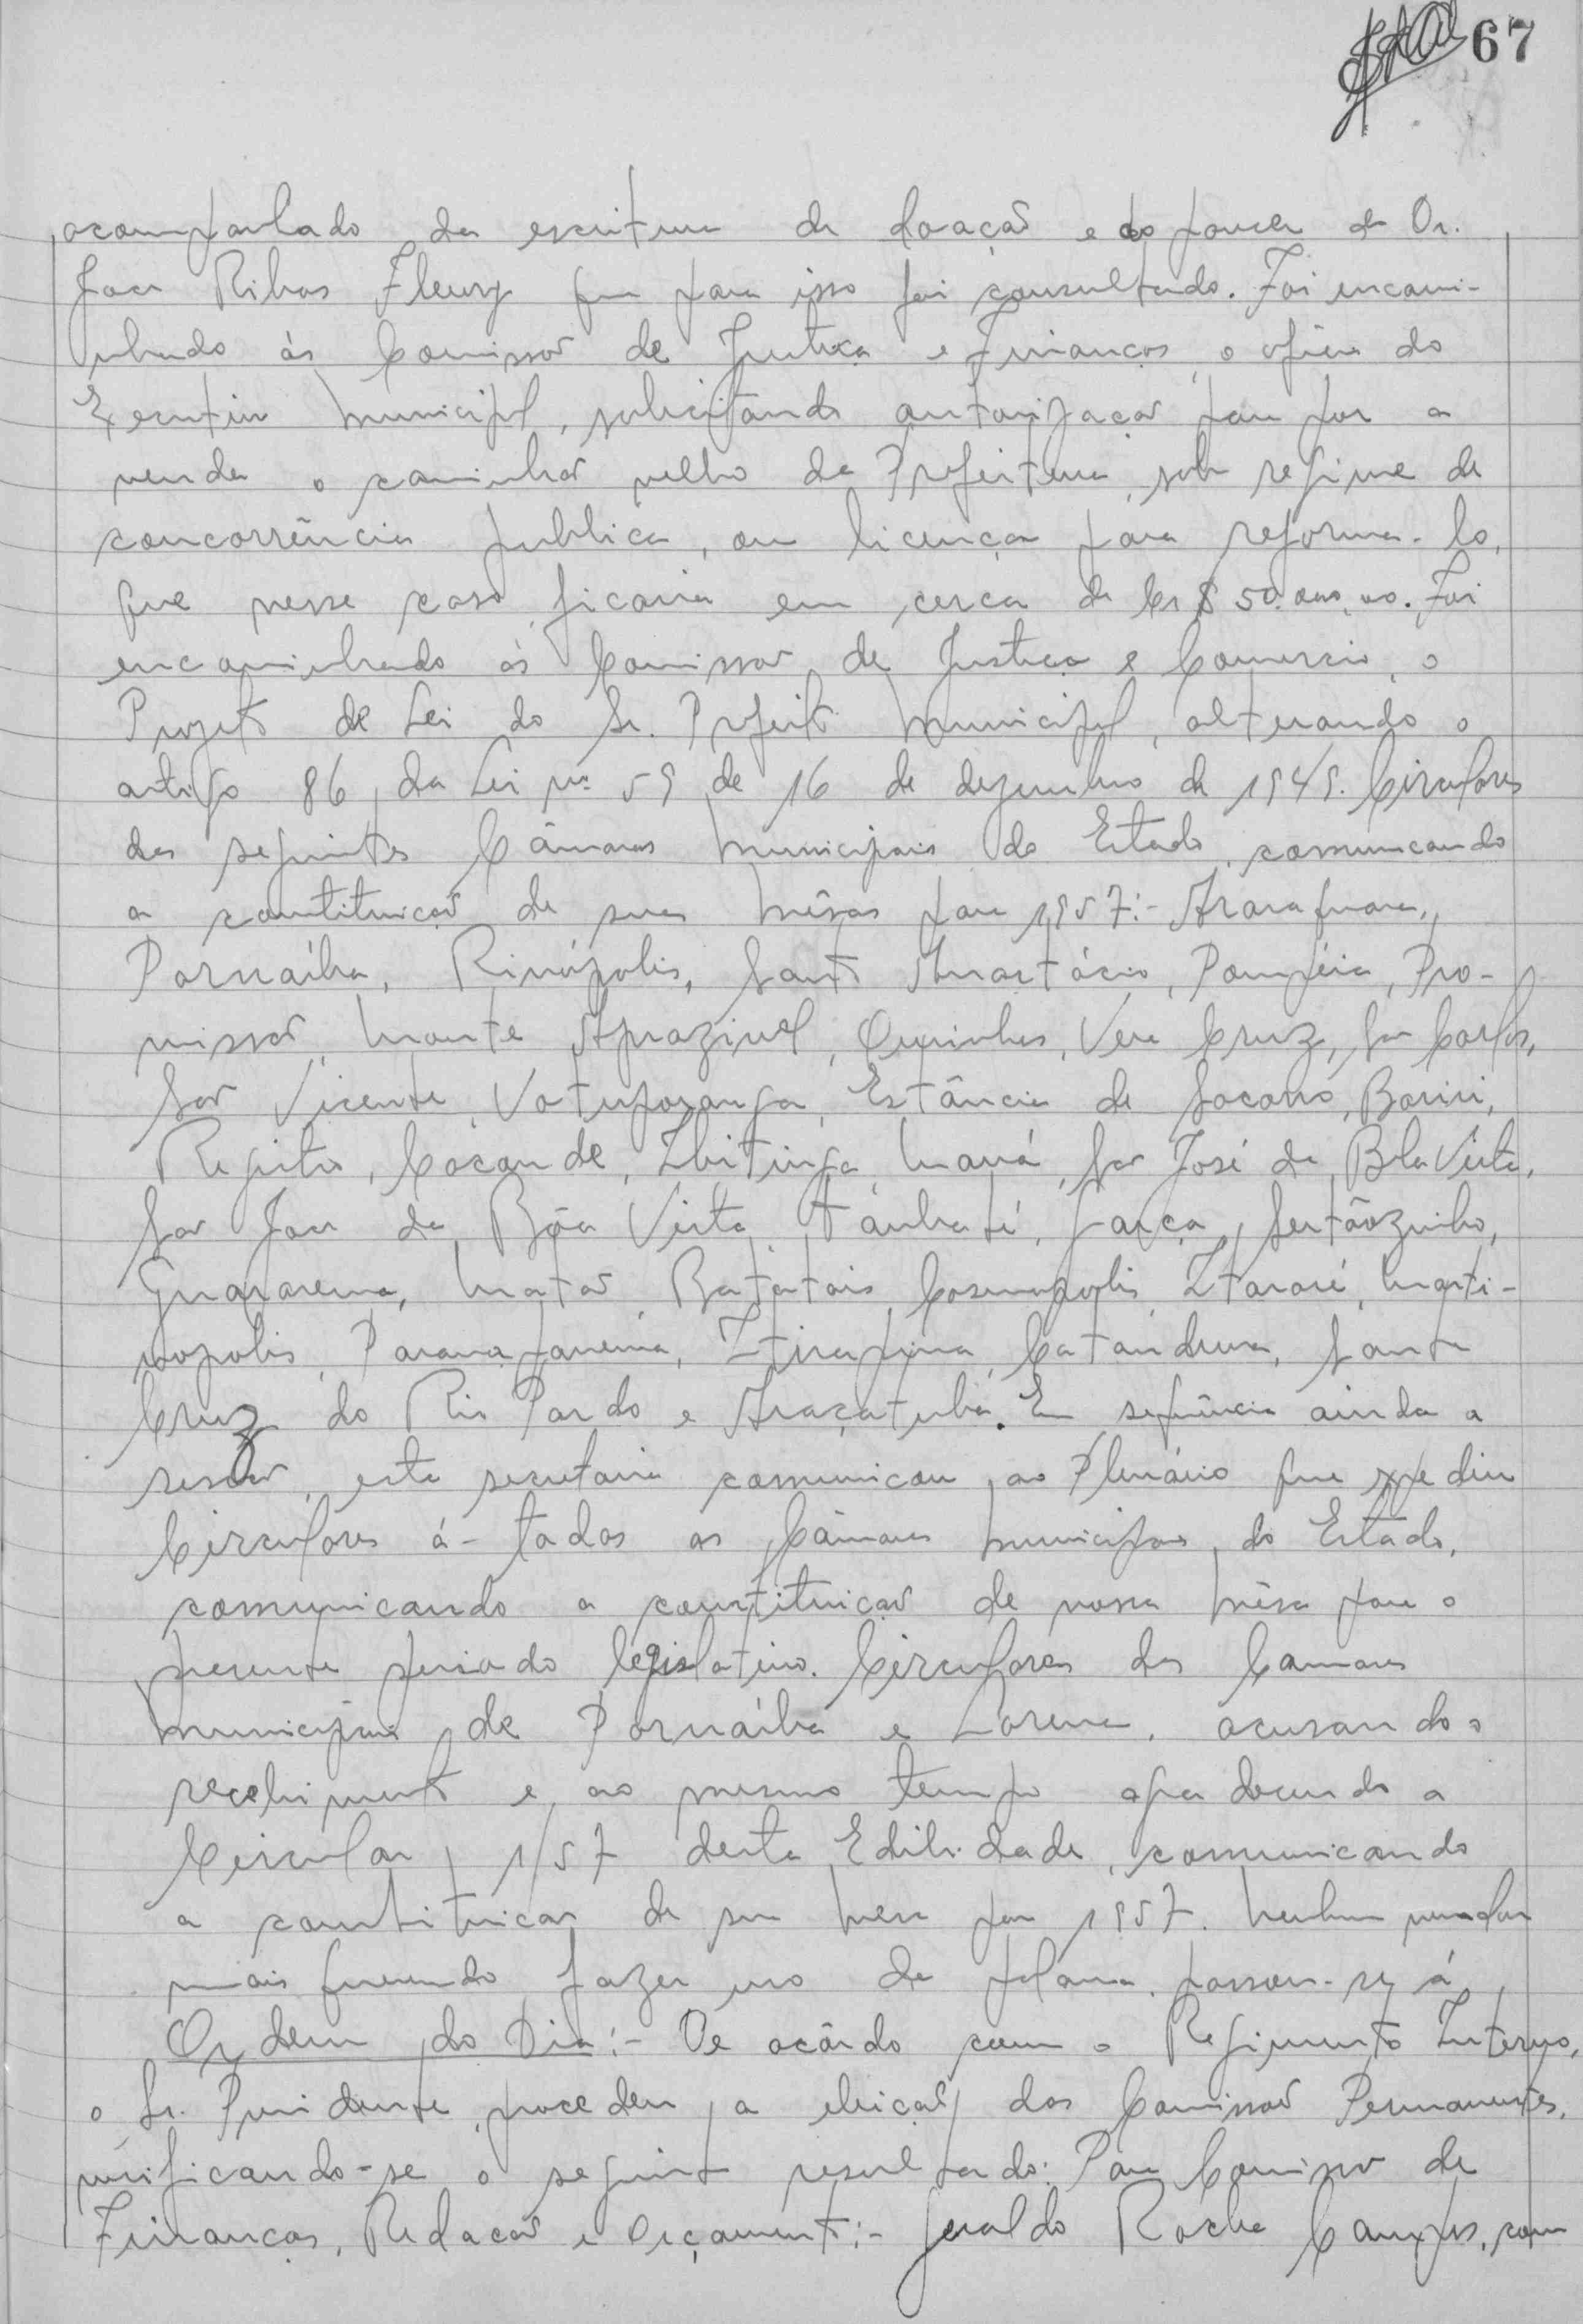 67
acompanhado da escritura de doação e do parecer do Dr.
João Ribas Fleury que para isso foi consultado. Foi encami-
nhado às Comissões de Justiça e Finanças, o ofício do
Executivo Municipal, solicitando autorização para por a
venda o caminhão velho da Prefeitura, sob regime de
concorrência publica, ou licença para reforma-lo,
que nesse caso ficaria em cerca de Cr$ 50.000,00. Foi
encaminhado às Comissões de Justiça e Comercio, o
Projeto de Lei do Sr. Prefeito Municipal, alterando o
artigo 86 da Lei nº 59 de 16 de dezembro de 1949. Circulares
das seguintes Câmaras Municipais do Estado, comunicando
a constituição de suas mêsas para 1957:- Araraquara,
Parnaíba, Rinópolis, Santo Anastácio, Pompéia, Pro-
missão, Monte Aprazivel, Ourinhos, Vera Cruz, São Carlos,
São Vicente, Votuporanga, Estância de Socorro, Bariri,
Registro, Caconde, Ibitinga, Mauá, São José da Bela Vista,
São João da Bôa Vista, Taubaté, Garça, Sertãozinho,
Guararema, Matão, Batatais, Cosmopolis, Itararé, Marti-
nopolis, Paranapanema, Itirapina, Catanduva, Santa
Cruz do Rio Pardo e Araçatuba. Em sequência ainda a
sessão, esta secretaria comunicou ao Plenário que expediu
Circulares á-todas as Câmaras Municipais do Estado,
comunicando a constituição de nossa mêsa para o
presente periodo legislativo. Circulares das Camaras
Municipais de Parnaíba e Lorena, acusando o
recebimento e ao mesmo tempo agradecendo a
Circular 1/57 desta Edilidade, comunicando
a constituição de sua mesa para 1957. Nenhum vereador
mais querendo fazer uso da palavra, passou-se á
Ordem do Dia:- De acôrdo com o Regimento Interno,
o Sr. Presidente procedeu a eleição das Comissões Permanentes,
verificando-se o seguinte resultado: Para Comissão de
Finanças, Redação e Orçamento:- Geraldo Rocha Campos, com